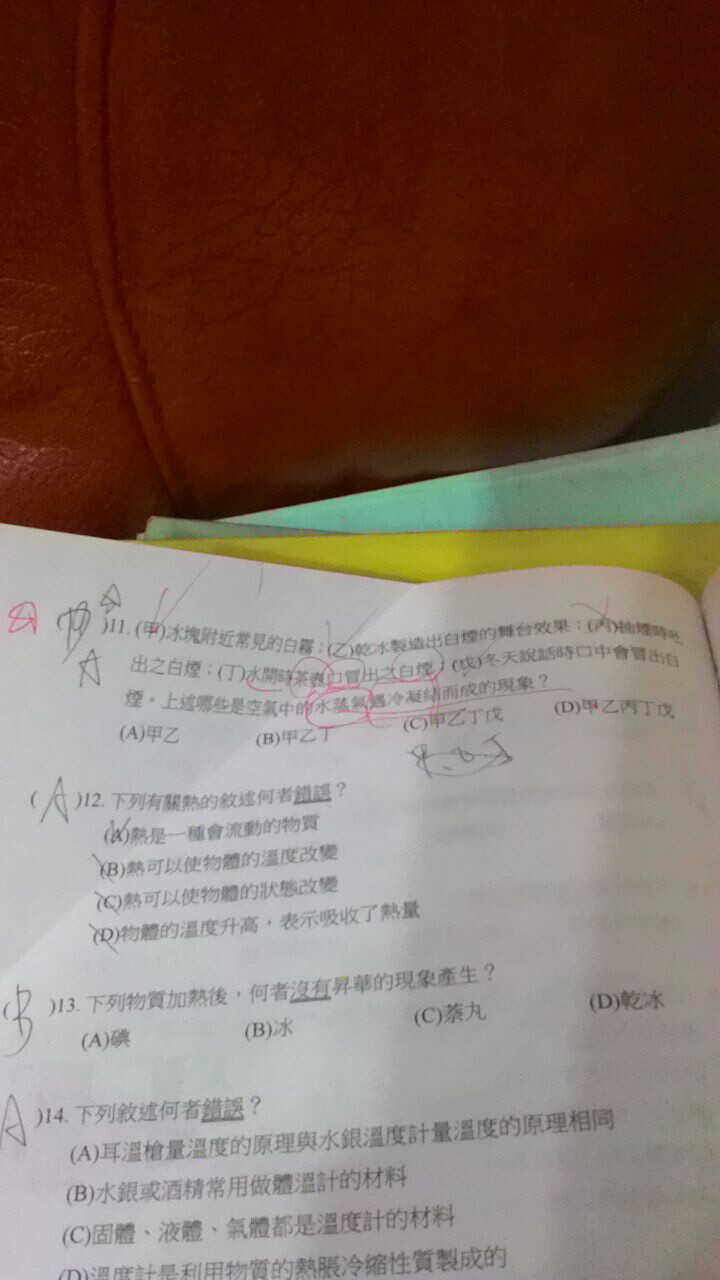 )11. (甲)冰塊附近常見的白霧；(乙)乾冰製造出白煙的舞台效果；(丙)抽煙時吐
出之白煙；(丁)水開時茶壺口冒出之白煙；(戊)冬天說話時口中會冒出白
煙。上述哪些是空氣中的水蒸氣遇冷凝結而成的現象？
(A)甲乙 (B)甲乙丁 (C)甲乙丁戊 (D)甲乙丙丁戊
A
(A)12. 下列有關熱的敘述何者錯誤？
(A)熱是一種會流動的物質
(B)熱可以使物體的溫度改變
(C)熱可以使物體的狀態改變
(D)物體的溫度升高，表示吸收了熱量
(B)13. 下列物質加熱後，何者沒有昇華的現象產生？
(A)碘 (B)冰 (C)萘丸 (D)乾冰
A)14. 下列敘述何者錯誤？
(A)耳溫槍量溫度的原理與水銀溫度計量溫度的原理相同
(B)水銀或酒精常用做體溫計的材料
(C)固體、液體、氣體都是溫度計的材料
(D)溫度計是利用物質的熱脹冷縮性質製成的